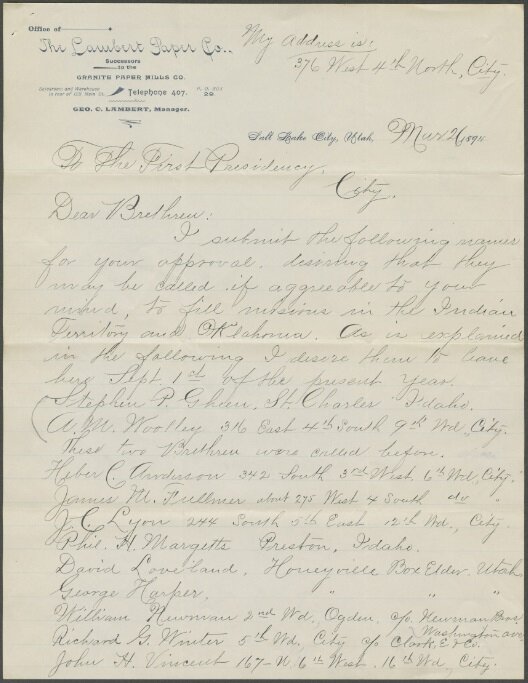 Office of
The Lambert Paper Co.,
Successors
to the
GRANITE PAPER MILLS CO.
Salesroom and Warehouse
in rear of Main St.
Telephone 407.
P. O. BOX
29
GEO. C. LAMBERT, Manager.
My Address is:
376 West 4th North, City.
Salt Lake City, Utah, 1894
To The First Presidency,
City.
Dear Brethren:
I submit the following names
for your approval. desiring that they
may be called if aggreeable to your
mind, to fill missions in the Indian
Territory and Oklahoma. As is explained
in the following I desire them to leave
here Sept. 1st of the present year.
Stephen P. St. Charles Idaho.
A. M. Woolley 376 East 4th South 9th Wd, City.
These two Brethren were called before.
Heber C. Anderson 342 South 3rd West, 6th Wd, City.
James M. Fullmer about 275 West 4 South do "
J. C. Lyon 244 South 5th East 12th Wd., City
Phil. H. Margetts Preston, Idaho.
David Loveland. Honeyville Box Elder. Utah
George Harper, " " "
William Newman 2nd Wd, Ogden, c/o Newman Bros
Washington ave
Richard G. Winter 5th Wd, City c/o Clark, E & Co.
John H. Vincent 167-N 6th West. 16th Wd, City.